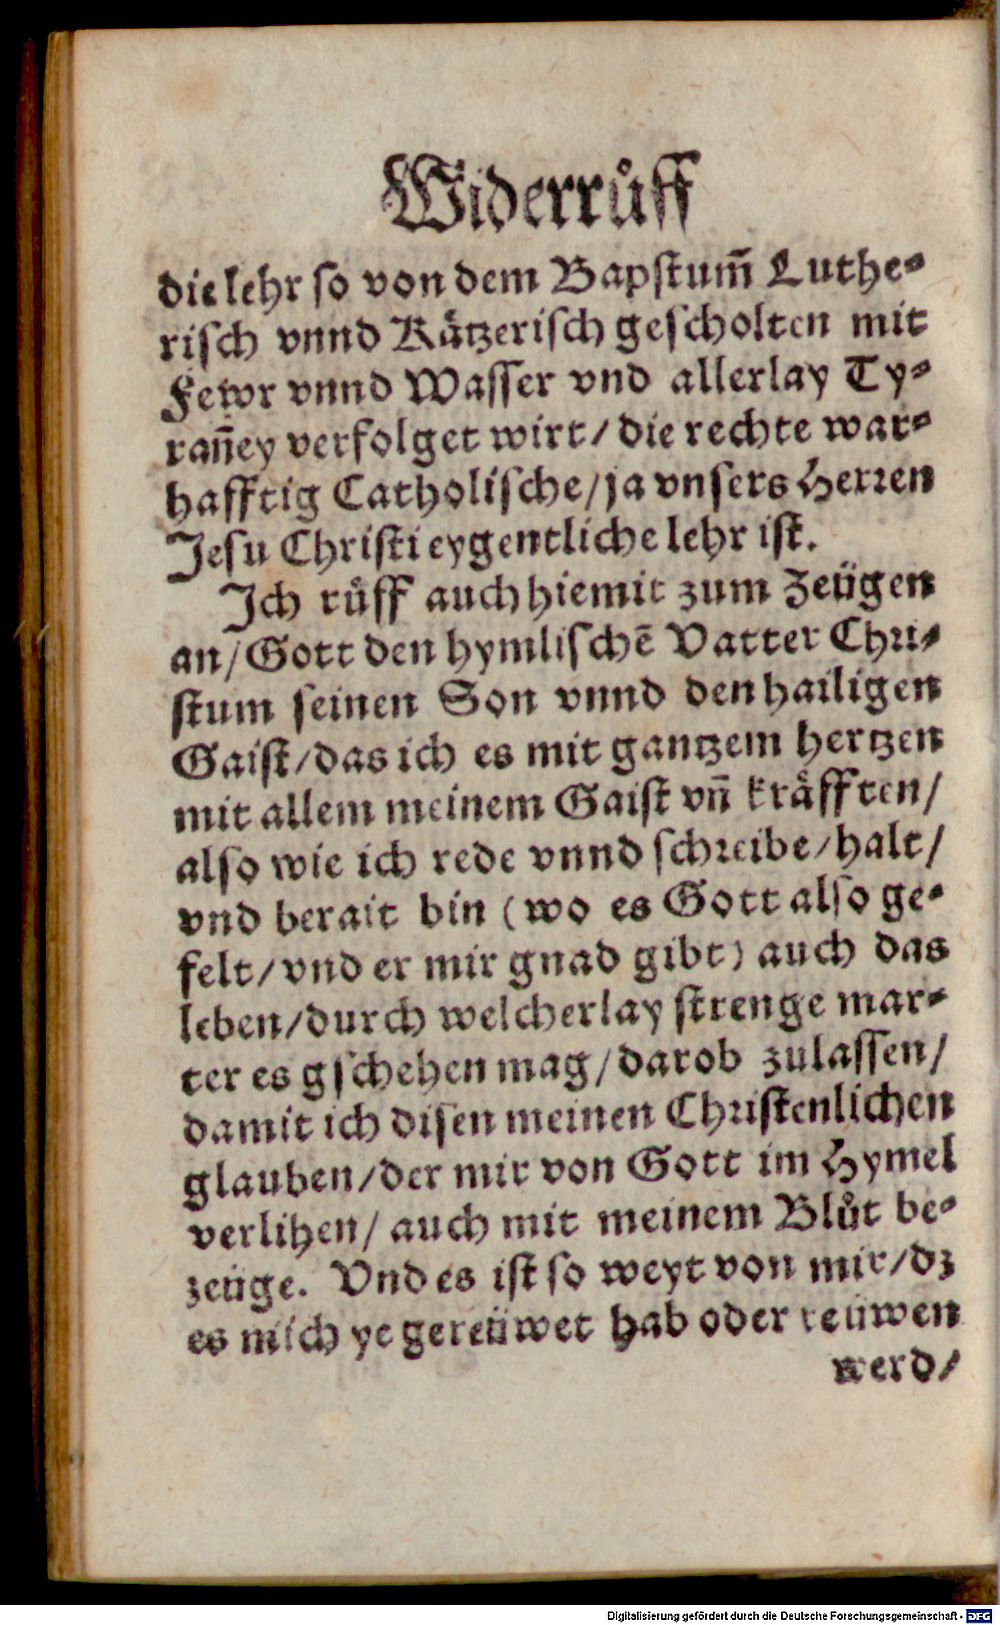 Widerrůff
die lehr so von dem Bapstum̃ Luthe-
risch vnnd Kätzerisch gescholten mit
Fewr vnnd Wasser vnd allerlay Ty-
rañey verfolget wirt/ die rechte war-
hafftig Catholische/ ja vnsers Herren
Jesu Christi eygentliche lehr ist.
Jch růff auch hiemit zum Zeügen
an/ Gott den hymlischē Vatter Chri-
stum seinen Son vnnd den hailigen
Gaist/ das ich es mit gantzem hertzen
mit allem meinem Gaist vñ kräfften/
also wie ich rede vnnd schreibe/ halt/
vnd berait bin (wo es Gott also ge-
felt/ vnd er mir gnad gibt) auch das
leben/ durch welcherlay strenge mar-
ter es gschehen mag/ darob zulassen/
damit ich disen meinen Christenlichen
glauben/ der mir von Gott im Hymel
verlihen/ auch mit meinem Blůt be-
zeüge. Vnd es ist so weyt von mir/ dz
es mich ye gereüwet hab oder reüwen
werd/
Digitalisierung gefördert durch die Deutsche Forschungsgemeinschaft - DFG